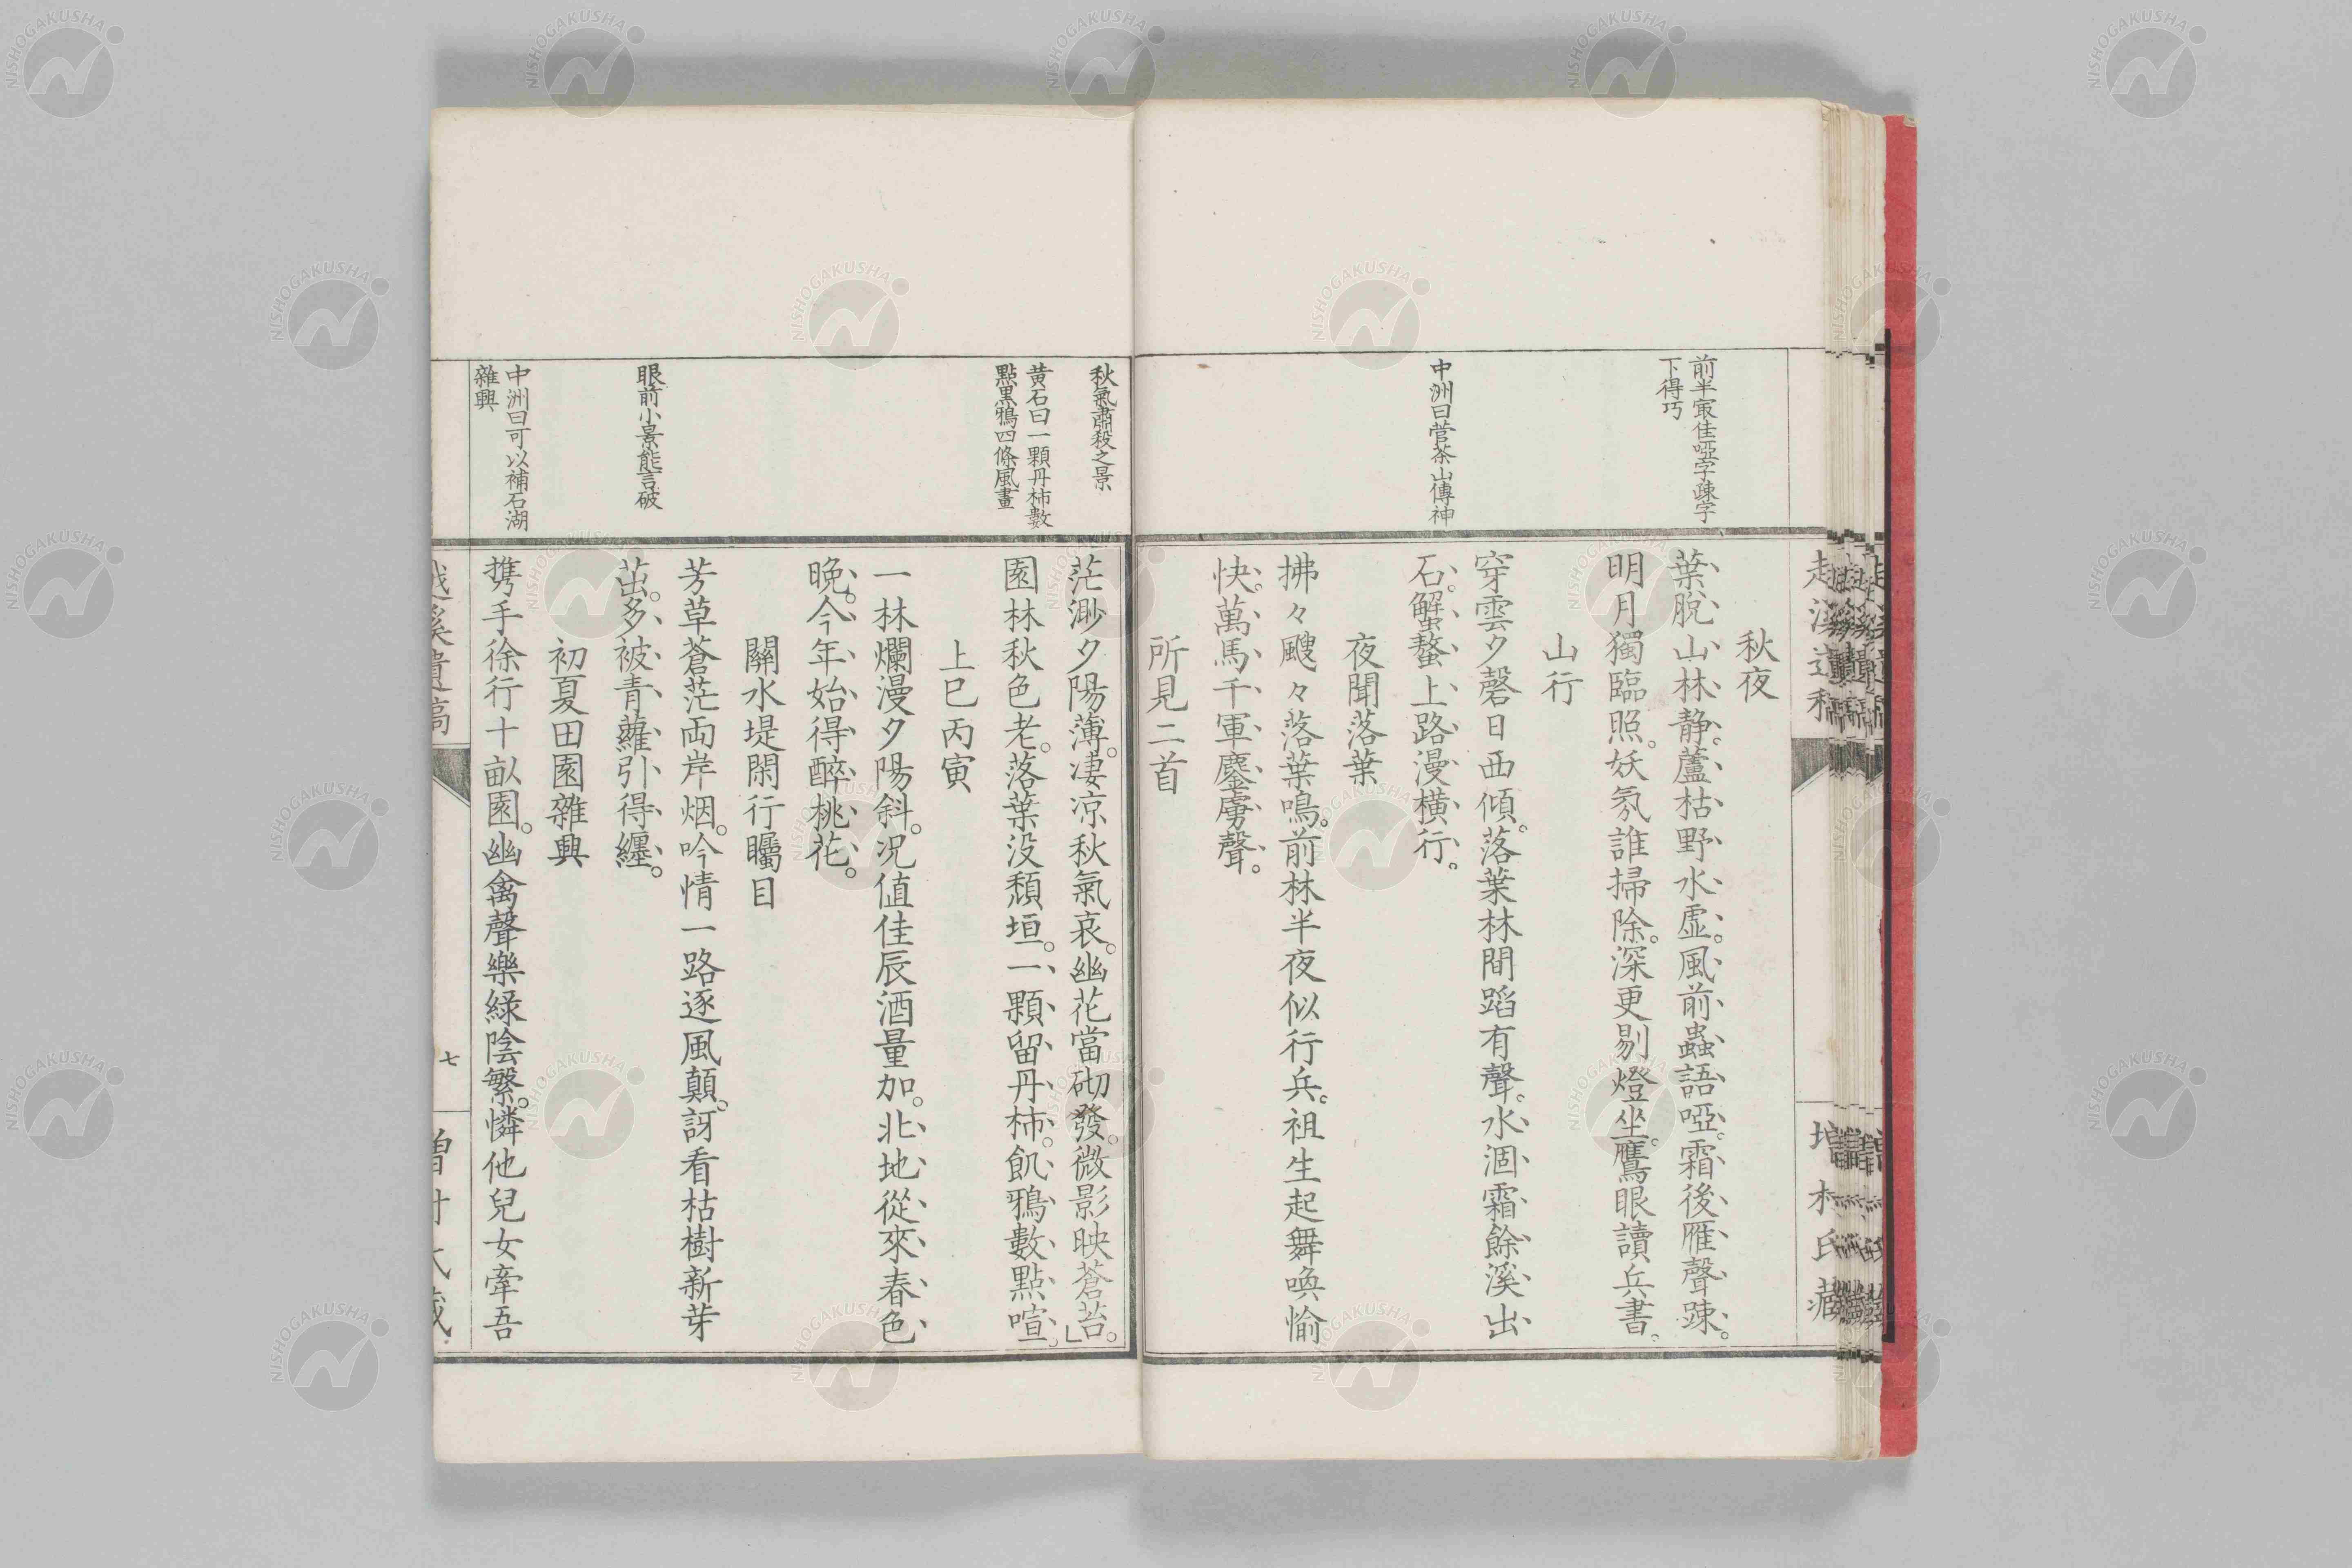 前半㝡佳啞字踈字
下得巧
中洲曰菅茶山傳神
秋夜
葉脫山林静。蘆枯野水虛。風前蟲語啞。霜後雁聲踈。
明月獨臨照。妖氛誰掃除。深更剔燈坐。鷹眼讀兵書。
山行
穿雲夕磬日西傾。落葉林間蹈有聲。水涸霜餘溪出
石。蟹螯上路漫橫行。
夜聞落葉
拂々颼々落葉鳴。前林半夜似行兵。祖生起舞喚愉
快。萬馬千軍鏖虜聲。
所見二首
秋氣肅殺之景
黃石曰一顆丹柿數
點黑鴉四條風畫
眼前小景能言破
中洲曰可以補石湖
雜興
茫渺夕陽薄。凄凉秋氣哀。幽花當砌發。微影映蒼苔。」
園林秋色老。落葉没頹垣。一顆留丹柿。飢鴉數點喧。
上巳丙寅
一林爛漫夕陽斜。况値佳辰酒量加。北地從來春色
晩。今年始得醉桃花。
關水堤閑行矚目
芳草蒼茫両岸烟。吟情一路逐風顛。訝看枯樹新芽
茁。多被青蘿引得纏。
初夏田園雜興
携手徐行十畝園。幽禽聲樂緑陰繁。憐他兒女牽吾
七